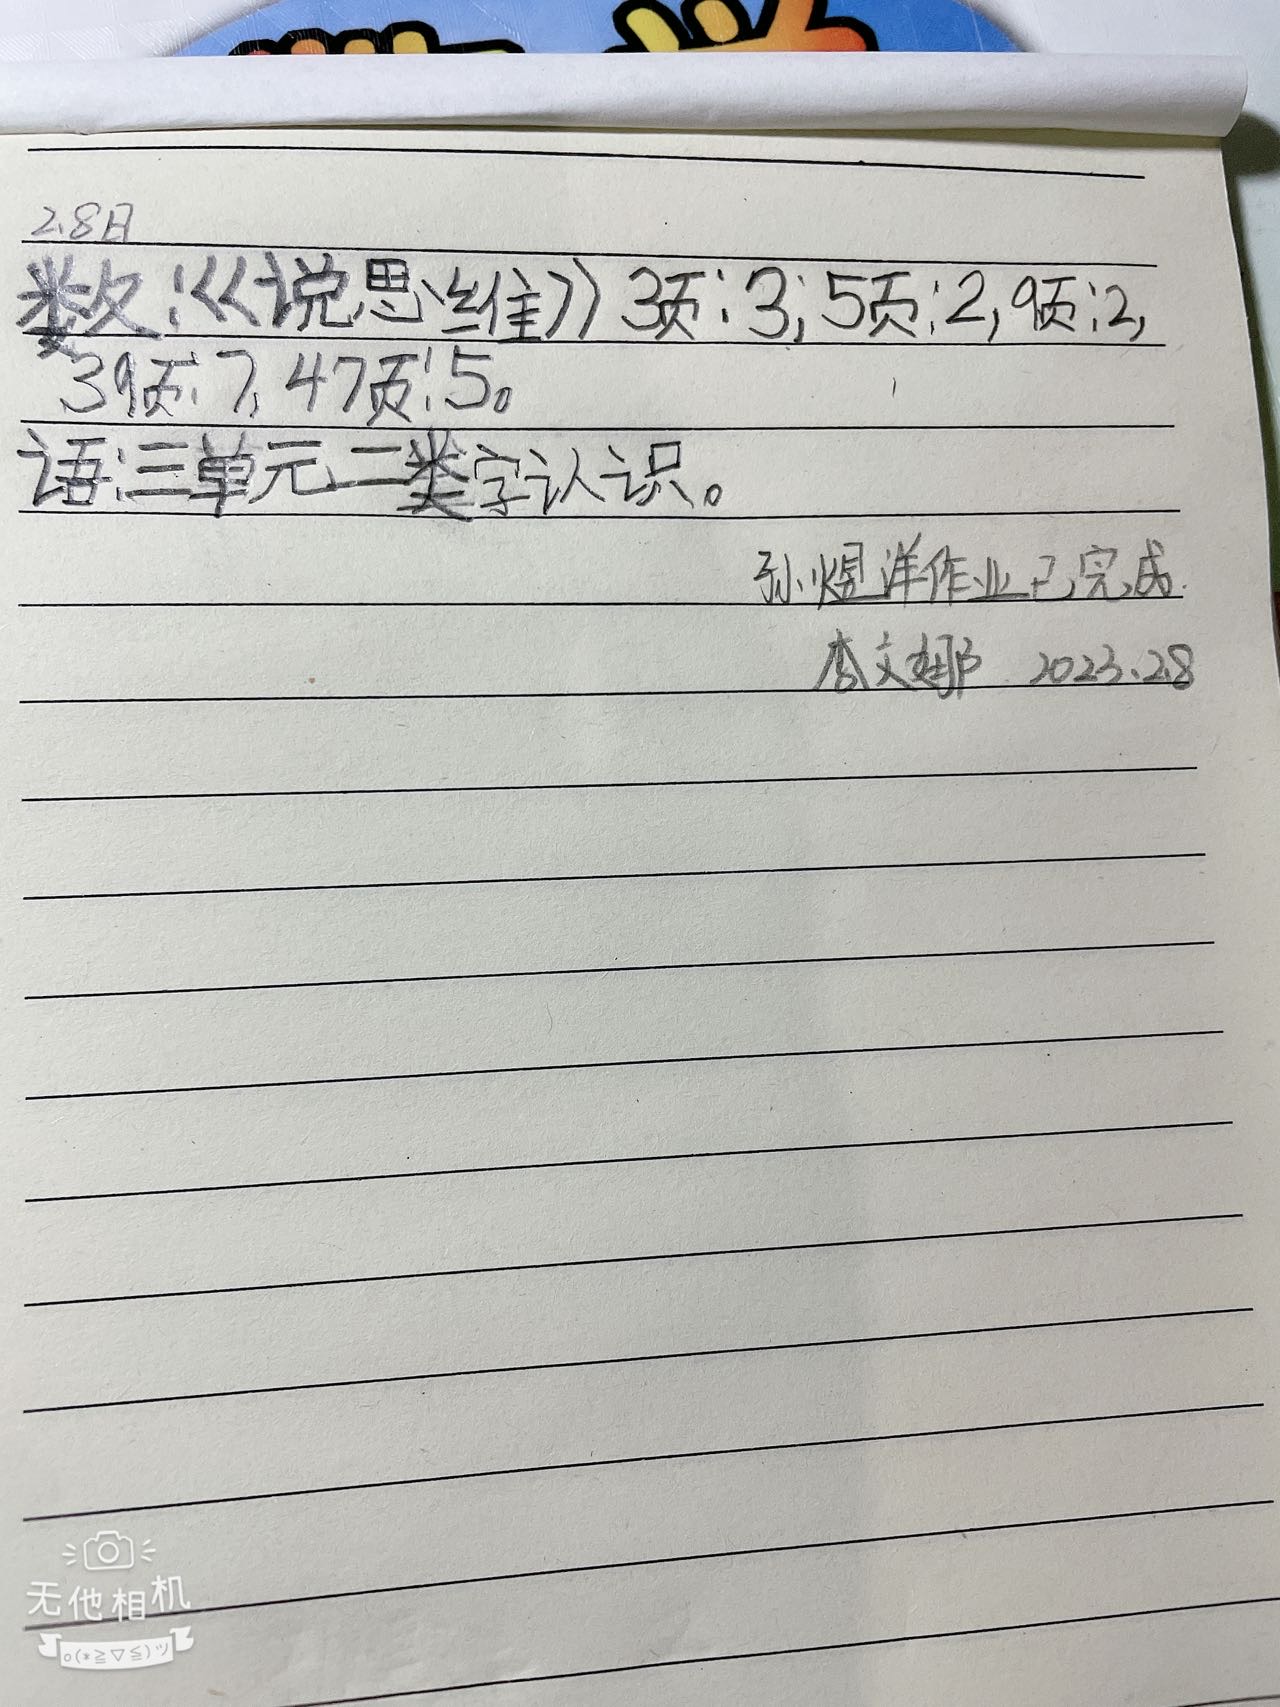 2.8日
数:《说思维》3页:3;5页:2,9页:2,
39页:7,47页:5。
语:三单元二类字认识。
孙煜洋作业已完成.
李文娜 2023.2.8
无他相机
o(*≧▽≦)ツ